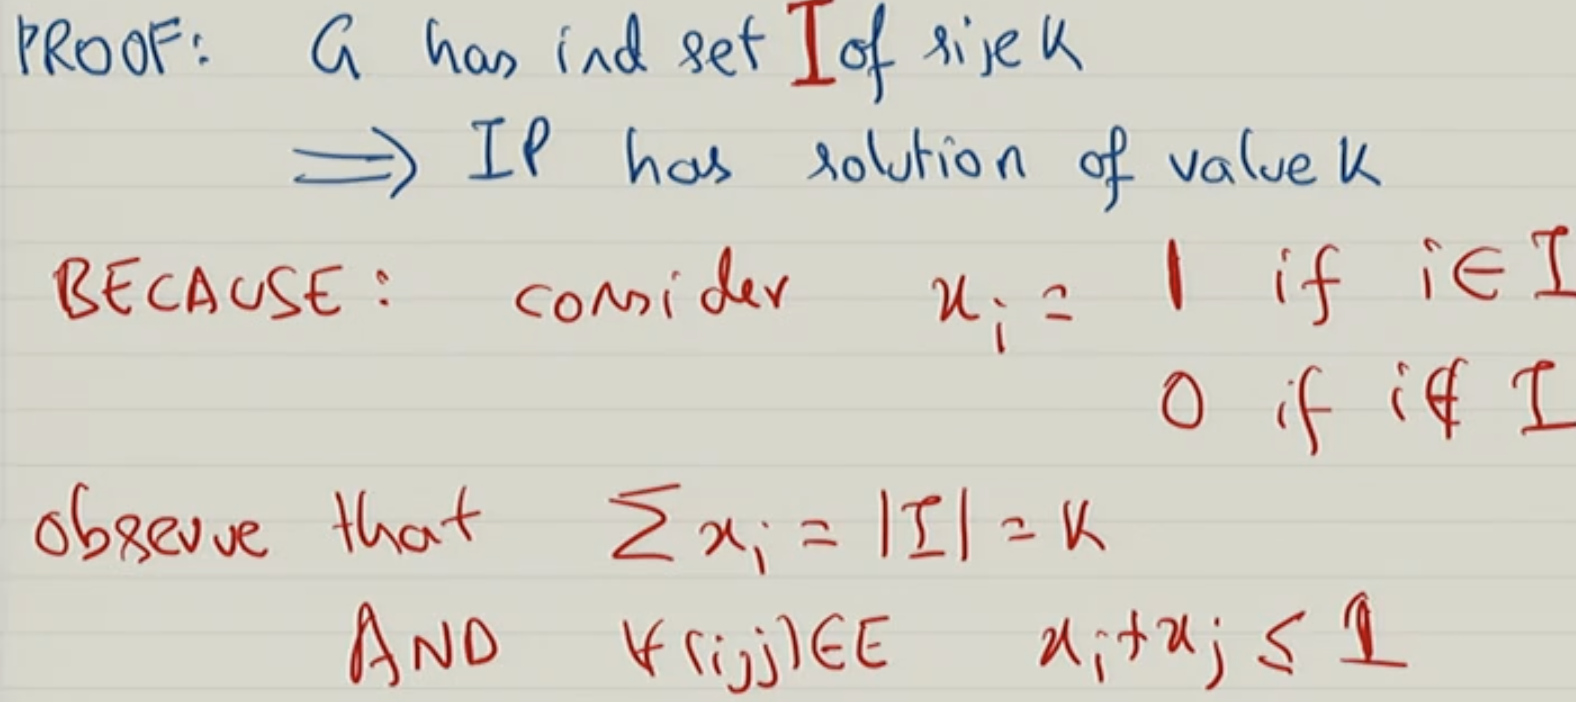 PROOF: G has ind set I of size K
⟹ IP has solution of value K
BECAUSE: consider x_i = 1 if i ∈ I
0 if i ∉ I
observe that ∑ x_i = |I| = K
AND ∀ (i,j) ∈ E x_i + x_j ≤ 1